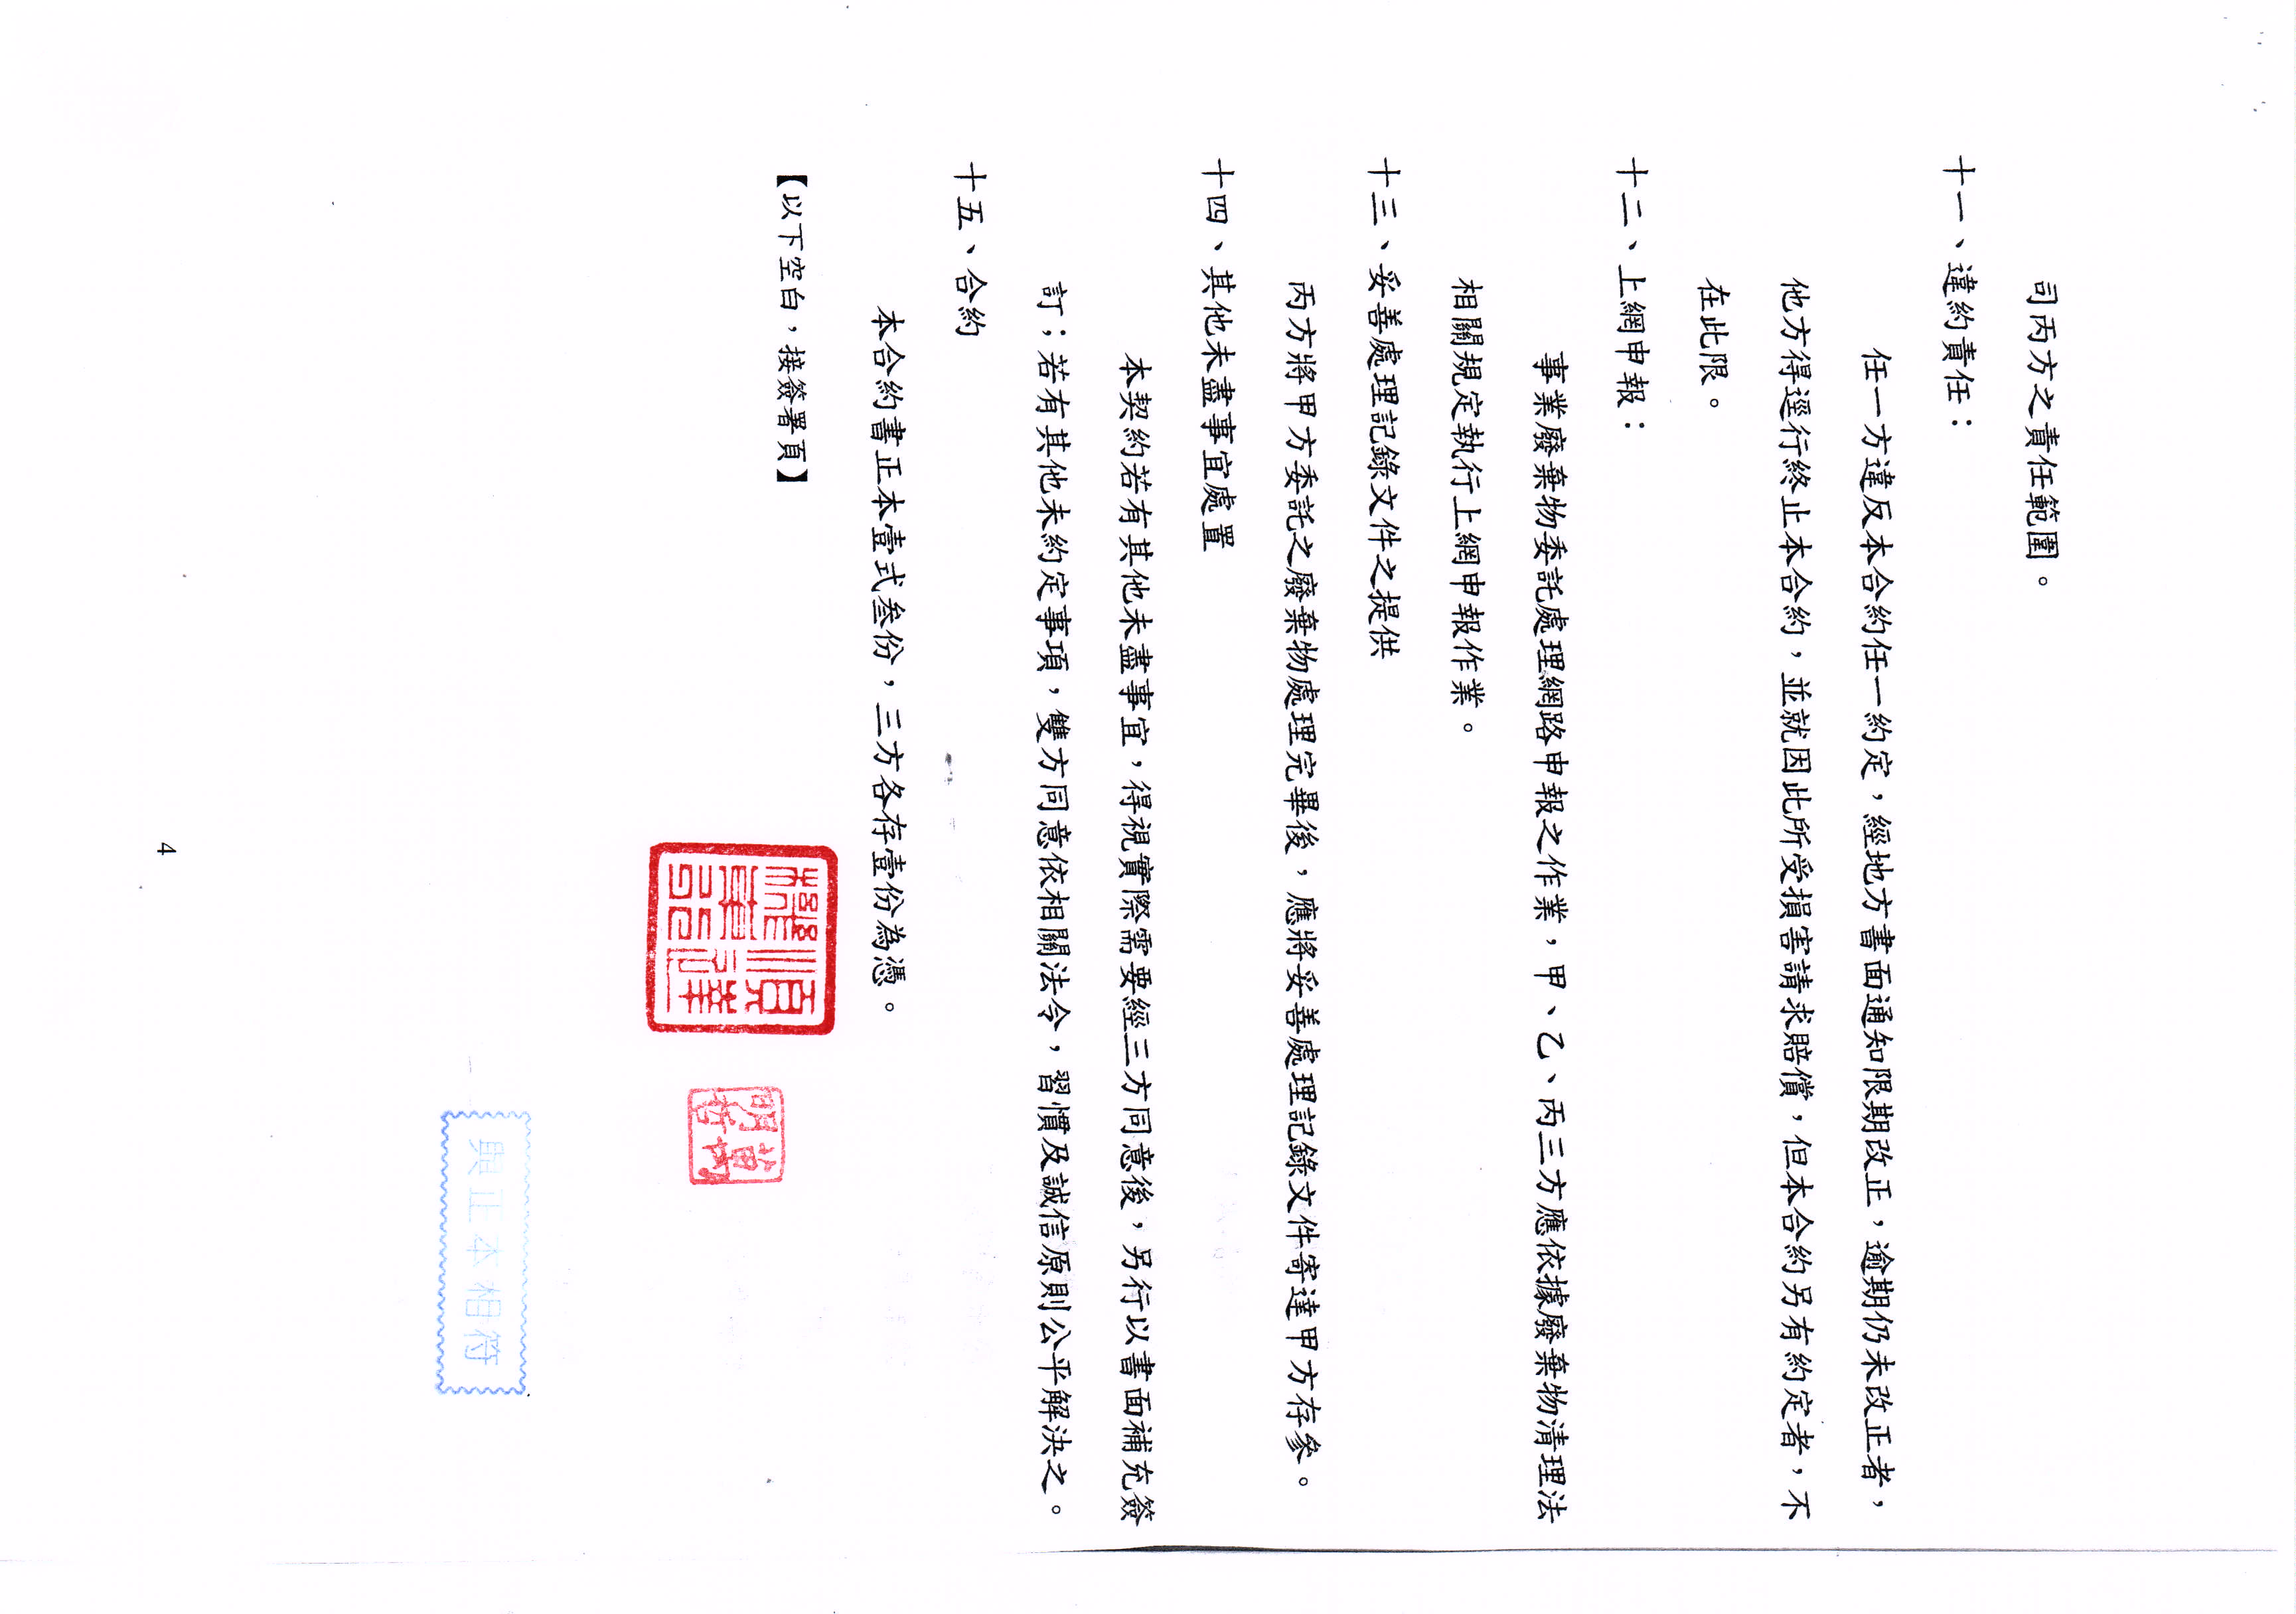 司丙方之責任範圍。
十一、違約責任：
任一方違反本合約任一約定，經地方書面通知限期改正，逾期仍未改正者，
他方得逕行終止本合約，並就因此所受損害請求賠償，但本合約另有約定者，不
在此限。
十二、上網申報：
事業廢棄物委託處理網路申報之作業，甲、乙、丙三方應依據廢棄物清理法
相關規定執行上網申報作業。
十三、妥善處理記錄文件之提供
丙方將甲方委託之廢棄物處理完畢後，應將妥善處理記錄文件寄達甲方存參。
十四、其他未盡事宜處置
本契約若有其他未盡事宜，得視實際需要經三方同意後，另行以書面補充簽
訂；若有其他未約定事項，雙方同意依相關法令，習慣及誠信原則公平解決之。
十五、合約
本合約書正本壹式叁份，三方各存壹份為憑。
【以下空白，接簽署頁】
與正本相符
4